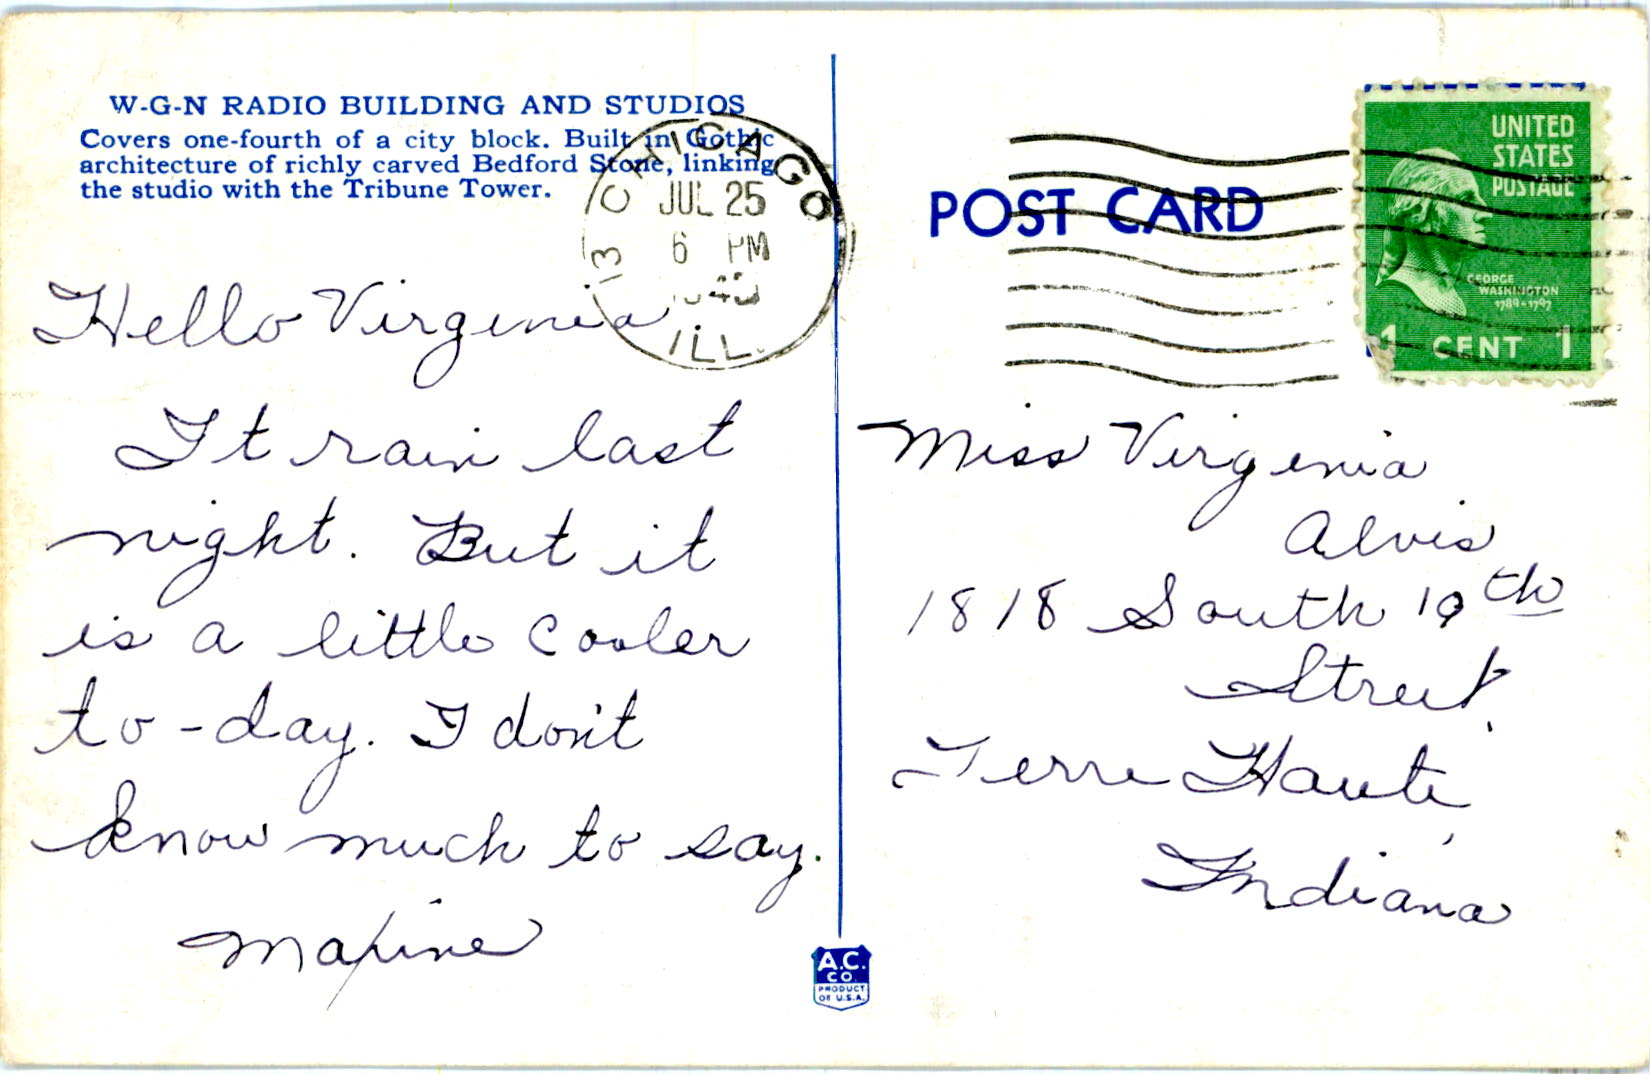 W-G-N RADIO BUILDING AND STUDIOS
Covers one-fourth of a city block. Built in Gothic
architecture of richly carved Bedford Stone, linking
the studio with the Tribune Tower.
CHICAGO 13
JUL 25
6 PM
ILL.
Hello Virginia
It rain last
night. But it
is a little cooler
to-day. I don't
know much to say.
Maxine
POST CARD
UNITED
STATES
POSTAGE
GEORGE
WASHINGTON
1789-1797
1 CENT 1
Miss Virginia
Alvis
1818 South 19th
Street,
Terre Haute,
Indiana
A.C.
CO.
PRODUCT
OF U.S.A.